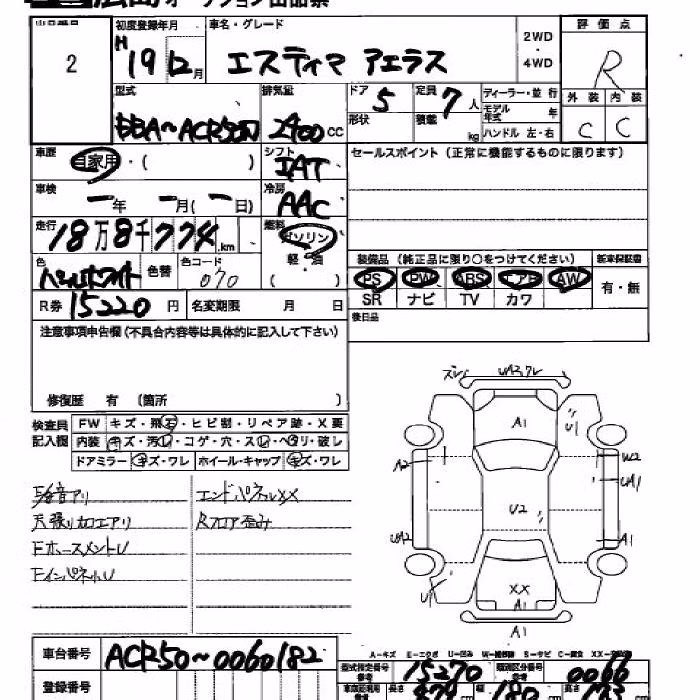 広島 オークション出品票
出品番号 初度登録年月 車名・グレード 2WD・4WD 評価点
2 H 19年12月 エスティマ アエラス R
型式 排気量 ドア 5 定員 7人 ディーラー・並行 外装 内装
形状 積載 kg モデル年式 年
DBA~ACR50W 2400cc ハンドル 左・右 C C
車歴 自家用・( ) シフト IAT セールスポイント(正常に機能するものに限ります)
車検 ー年 ー月(ー日) 冷房 AAC
走行 18万8千774km 燃料 ガソリン・軽油
装備品(純正品に限り○をつけてください) 新車保証書
色 パールホワイト 色替 色コード 070 PS PW ABS エアB AW 有・無
SR ナビ TV カワ
R券 15220円 名変期限 月 日 後日品
注意事項申告欄(不具合内容等は具体的に記入して下さい)
修復歴 有 (箇所 )
検査員記入欄 FW キズ・飛石・ヒビ割・リペア跡・X要
内装 キズ・汚レ・コゲ・穴・スレ・ヘタリ・破レ
ドアミラー キズ・ワレ ホイール・キャップ キズ・ワレ
天張り加工アリ Rフロア歪み
エンドパネルXX
FホースメントU
FインパネルU
ズレ UA2,ワレ
A1
U1
A2 W2
UA1
U2
UA2 A1
XX
U1 A1
A1
A-キズ E-エクボ U-凹み W-補修跡 S-サビ C-腐食 XX-交換済
車台番号 ACR50~0060182
型式指定番号 15270 類別区分番号 0066
登録番号
長さ 479cm 幅 180cm 173